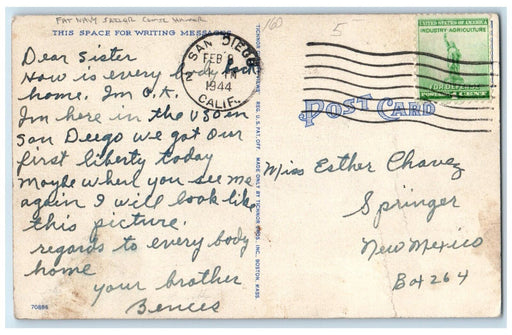 FAT NAVY SAILOR COMIC HUMOR
160
5
THIS SPACE FOR WRITING MESSAGES
Dear Sister
How is every body back
home. Im O.K.
Im here in the USO in
San Deego we got our
first liberty today
Maybe when you see me
again I will look like
this picture.
regards to every body
home
your brother
Bences
70886
SAN DIEGO
FEB
1944
CALIF.
UNITED STATES OF AMERICA
INDUSTRY AGRICULTURE
FOR DEFENSE
POST CARD
Miss Esther Chavez
Springer
New Mexico
Box 264
REG. U.S. PAT. OFF. MADE ONLY BY TICHNOR BROS. INC. BOSTON, MASS.